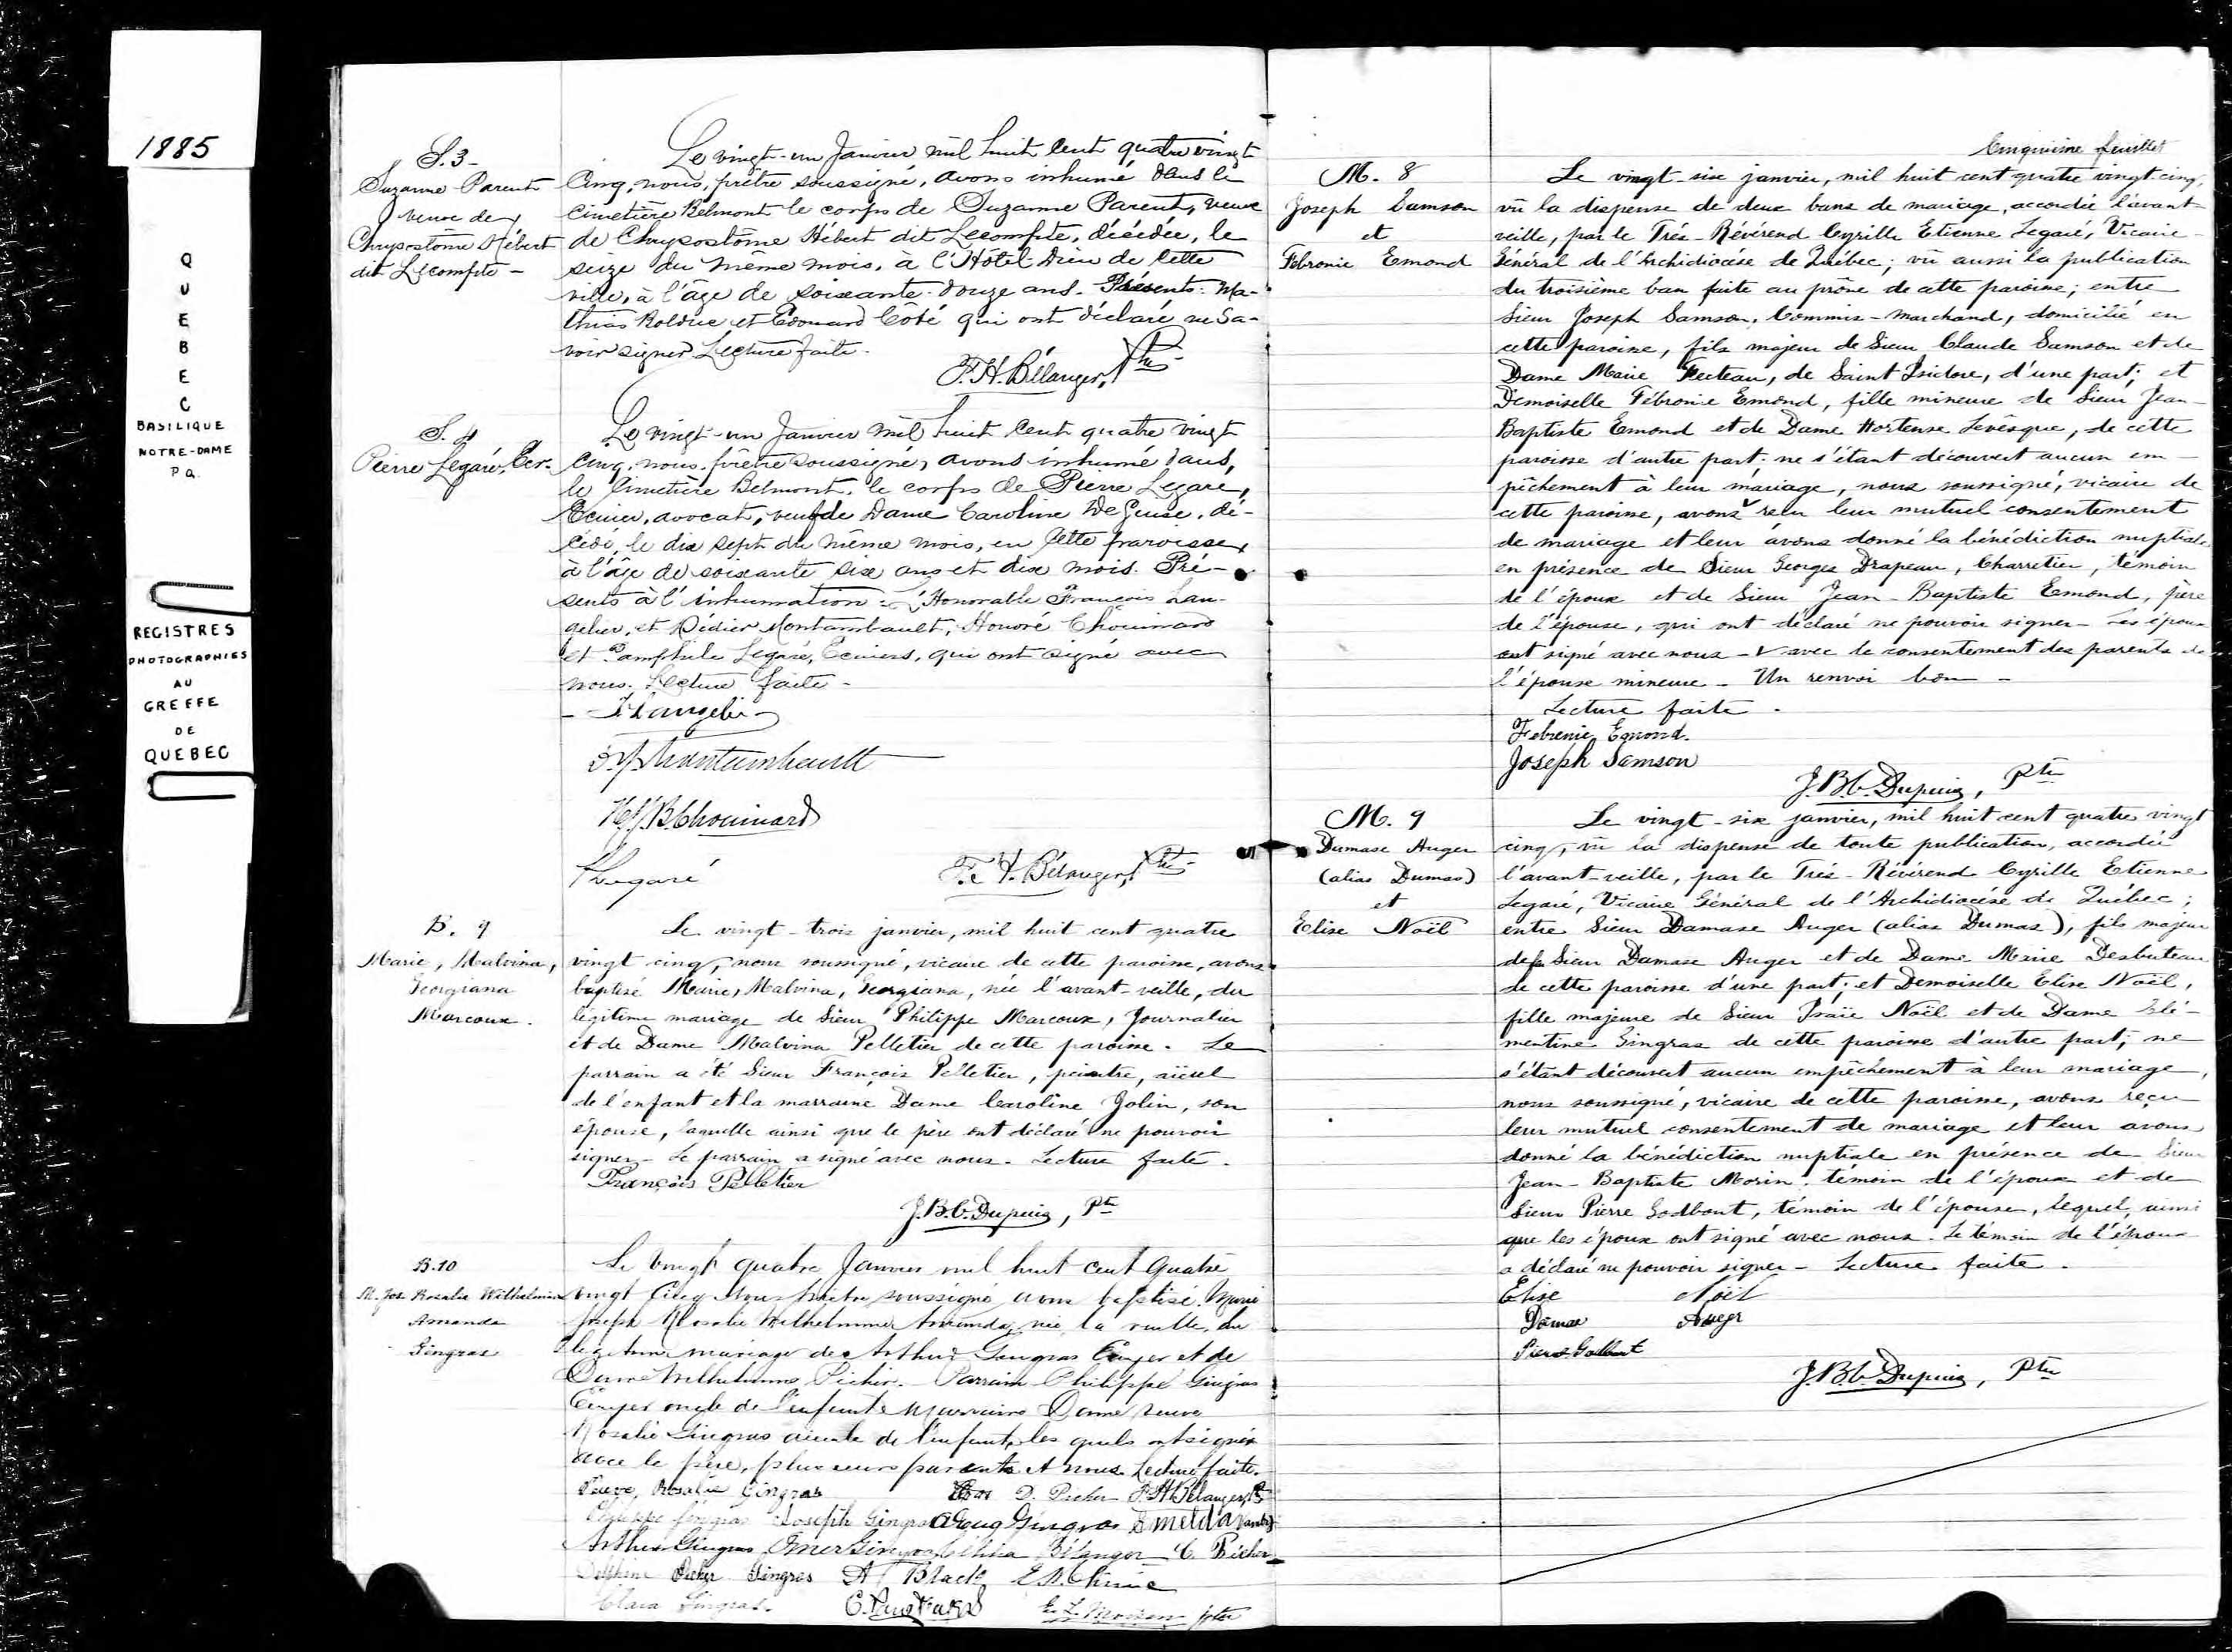 1885
QUEBEC
BASILIQUE
NOTRE-DAME
P Q.
REGISTRES
PHOTOGRAPHIES
AU
GREFFE
DE
QUEBEC
S. 3-
Suzanne Parent
veuve de
Chrysostôme Hébert
dit Lecompte -
Le vingt-un Janvier mil huit cent quatre vingt
cinq, nous, prêtre soussigné, avons inhumé dans le
cimetière Belmont le corps de Suzanne Parent, veuve
de Chrysostôme Hébert dit Lecompte, décédée, le
seize du même mois, à l'Hôtel-Dieu de cette
ville, à l'âge de soixante-douze ans. Présents: Ma-
thias Rolduc et Edouard Côté qui ont déclaré ne sa-
voir signer Lecture faite.
F. H. Bélanger, Ptre
S. 4
Pierre Legaré, Ecr.
Le vingt-un Janvier mil huit cent quatre vingt
cinq, nous, prêtre soussigné, avons inhumé dans,
le cimetière Belmont, le corps de Pierre Legaré,
Ecuier, avocat, veuf de Dame Caroline DeGuise, dé-
cédé, le dix sept du même mois, en cette paroisse,
à l'âge de soixante six ans et dix mois. Pré-
sents à l'inhumation: L'Honorable François Lan-
gelier, et Didier Montambault, Honoré Chouinard
et Pamphile Legaré, Ecuiers, qui ont signé avec
nous. Lecture faite -
- F. Langelier
Montambault
H. J. J. B. Chouinard
P Legaré
F. H. Bélanger, Ptre
B. 9
Marie, Malvina,
Georgiana
Marcoux.
Le vingt-trois janvier, mil huit cent quatre
vingt cinq, nous soussigné, vicaire de cette paroisse, avons
baptisé Marie, Malvina, Georgiana, née l'avant-veille, du
légitime mariage de Sieur Philippe Marcoux, Journalier
et de Dame Malvina Pelletier de cette paroisse. Le
parrain a été Sieur François Pelletier, peintre, aïeul
de l'enfant et la marraine Dame Caroline Jolin, son
épouse, laquelle ainsi que le père ont déclaré ne pouvoir
signer - Le parrain a signé avec nous. Lecture faite.
François Pelletier
J. B. C. Dupuis, Ptre
B. 10
M. Jos. Rosalie Wilhelmine
Amanda
Gingras
Le vingt quatre Janvier mil huit cent quatre
vingt cinq Nous prêtre soussigné avons baptisé Marie
Joseph Rosalie Wilhelmine Amanda, née la veille, du
légitime mariage de Arthur Gingras Ecuyer et de
Dame Wilhelmine Picher. Parrain Philippe Gingras
Ecuyer oncle de l'enfant Marraine Dame veuve
Rosalie Gingras aieule de l'enfant, les quels ont signés
avec le père, plusieurs parents et nous. Lecture faite.
Veuve, Rosalie Gingras D. Picher F. H. Bélanger, Ptre
Philippe Gingras Joseph Gingras Gingras
Arthur Gingras Omer Gingras Bélanger C. Picher
Delphine Picher Gingras A Black E D. Chinic
Clara Gingras.
Cinquième feuillet
M. 8
Joseph Samson
et
Febronie Emond
Le vingt-six janvier, mil huit cent quatre vingt-cinq,
vû la dispense de deux bans de mariage, accordée l'avant-
veille, par le Trés-Révérend Cyrille Etienne Legaré, Vicaire
Général de l'Archidiocèse de Québec; vû aussi la publication
du troisième ban faite au prône de cette paroisse; entre
Sieur Joseph Samson, Commis-marchand, domicilié en
cette paroisse, fils majeur de Sieur Claude Samson et de
Dame Marie Fecteau, de Saint Isidore, d'une part; et
Demoiselle Fébronie Emond, fille mineure de Sieur Jean-
Baptiste Emond et de Dame Hortense Levêsque, de cette
paroisse d'autre part; ne s'étant découvert aucun em-
pêchement à leur mariage, nous soussigné, vicaire de
cette paroisse, avons v reçu leur mutuel consentement
de mariage et leur avons donné la bénédiction nuptiale
en présence de Sieur Georges Drapeau, Charretier, témoin
de l'époux et de Sieur Jean-Baptiste Emond, père
de l'épouse, qui ont déclaré ne pouvoir signer - Les époux
ont signé avec nous - v avec le consentement des parents de
l'épouse mineure - Un renvoi bon -
Lecture faite.
Febronie Emond.
Joseph Samson
J. B. C. Dupuis, Ptre
M. 9
Damase Auger
(alias Dumas)
et
Elise Noël
Le vingt-six janvier, mil huit cent quatre vingt
cinq, vû la dispense de toute publication, accordée
l'avant-veille, par le Trés-Révérend Cyrille Etienne
Legaré, Vicaire Général de l'Archidiocèse de Québec;
entre Sieur Damase Auger (alias Dumas), fils majeur
de feu Sieur Damase Auger et de Dame Marie Desbuteau
de cette paroisse d'une part; et Demoiselle Elise Noël,
fille majeure de Sieur Isaïe Noël et de Dame Clé-
mentine Gingras de cette paroisse d'autre part; ne
s'étant découvert aucun empêchement à leur mariage,
nous soussigné, vicaire de cette paroisse, avons reçu
leur mutuel consentement de mariage et leur avons
donné la bénédiction nuptiale en présence de Sieur
Jean-Baptiste Morin, témoin de l'époux et de
Sieur Pierre Godbout, témoin de l'épouse, lequel, ainsi
que les époux ont signé avec nous. Le témoin de l'époux
a déclaré ne pouvoir signer - Lecture faite.
Elise Noël
Damase Auger
Pierre Godbout
J. B. C. Dupuis, Ptre